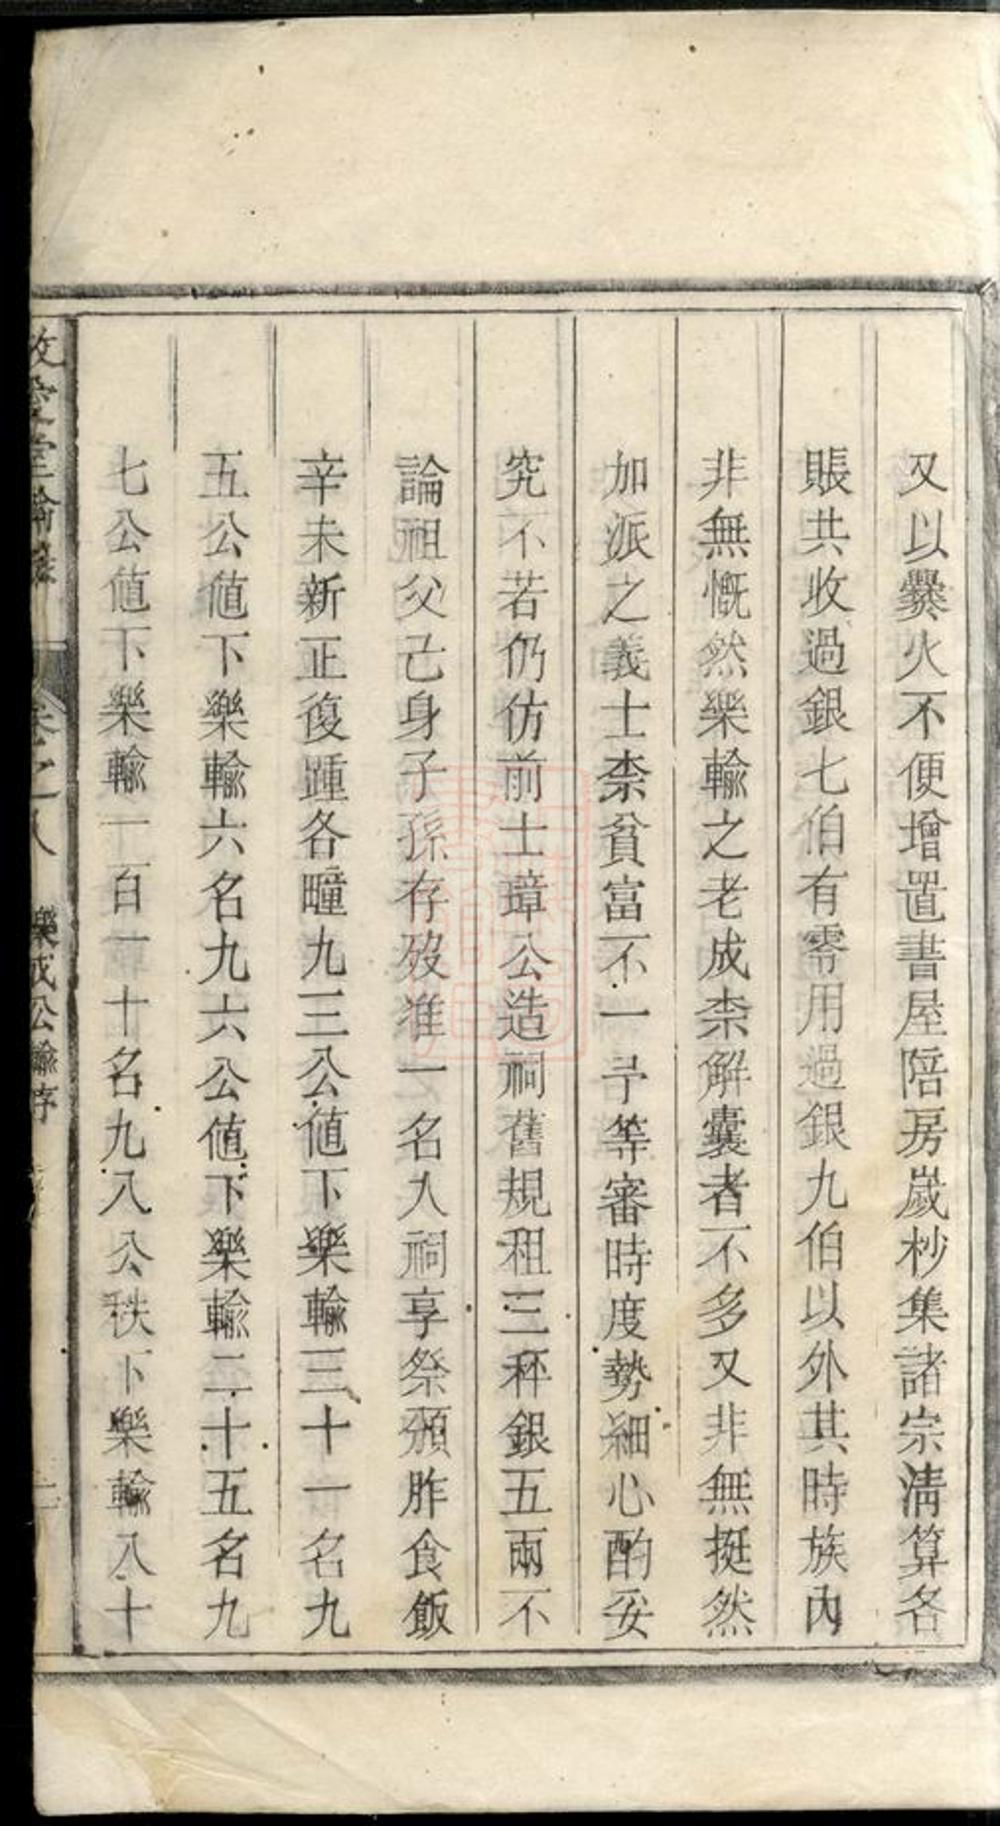 又以爨火不便增置書屋陪房歲杪集諸宗淸算各
賬共收過銀七伯有零用過銀九伯以外其時族內
非無慨然樂輸之老成柰解囊者不多又非無挺然
加派之義士柰貧富不一予等審時度勢細心酌妥
究不若仍仿前士璋公造祠舊規租三秤銀五兩不
論祖父己身子孫存歿准一名入祠享祭頒胙食飯
辛未新正復踵各疃九三公値下樂輸三十一名九
五公値下樂輸六名九六公値下樂輸二十五名九
七公値下樂輸一百一十名九八公秩下樂輸八十
卷之八
樂成公輸序